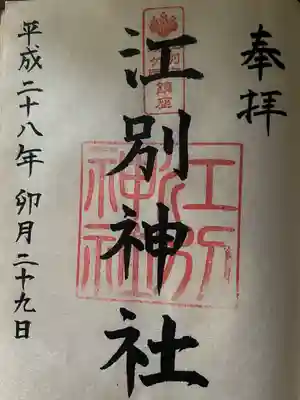 奉拝
江別神社
平成二十八年 卯月 二十九日
江別
神社